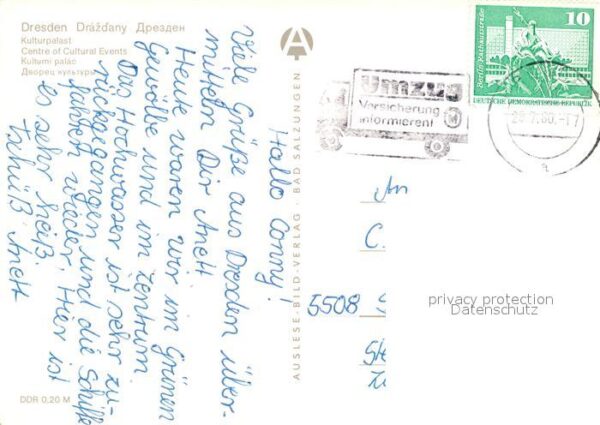 Dresden Drážďany Дрезден
Kulturpalast
Centre of Cultural Events
Kulturní palác
Дворец культуры
Hallo Conny!
Viele Grüße aus Dresden über-
mitteln Dir Anett
Heute waren wir im Grünen
Gewölbe und im Zentrum
Das Hochwasser ist sehr zu-
rückgegangen und die Schiffe
fahren wieder. Hier ist
es sehr heiß.
Tschüß Anett
DDR 0,20 M
AUSLESE-BILD-VERLAG · BAD SALZUNGEN
Umzug
Versicherung
informieren!
Berlin, Rathausstraße
10
DEUTSCHE DEMOKRATISCHE REPUBLIK
An
C.
5508
privacy protection
Datenschutz